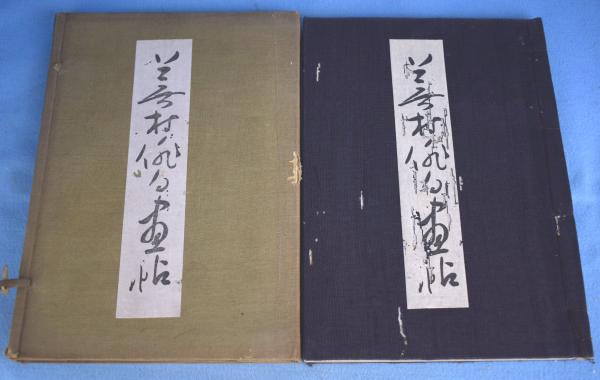 蕪村俳句畫帖
蕪村俳句畫帖